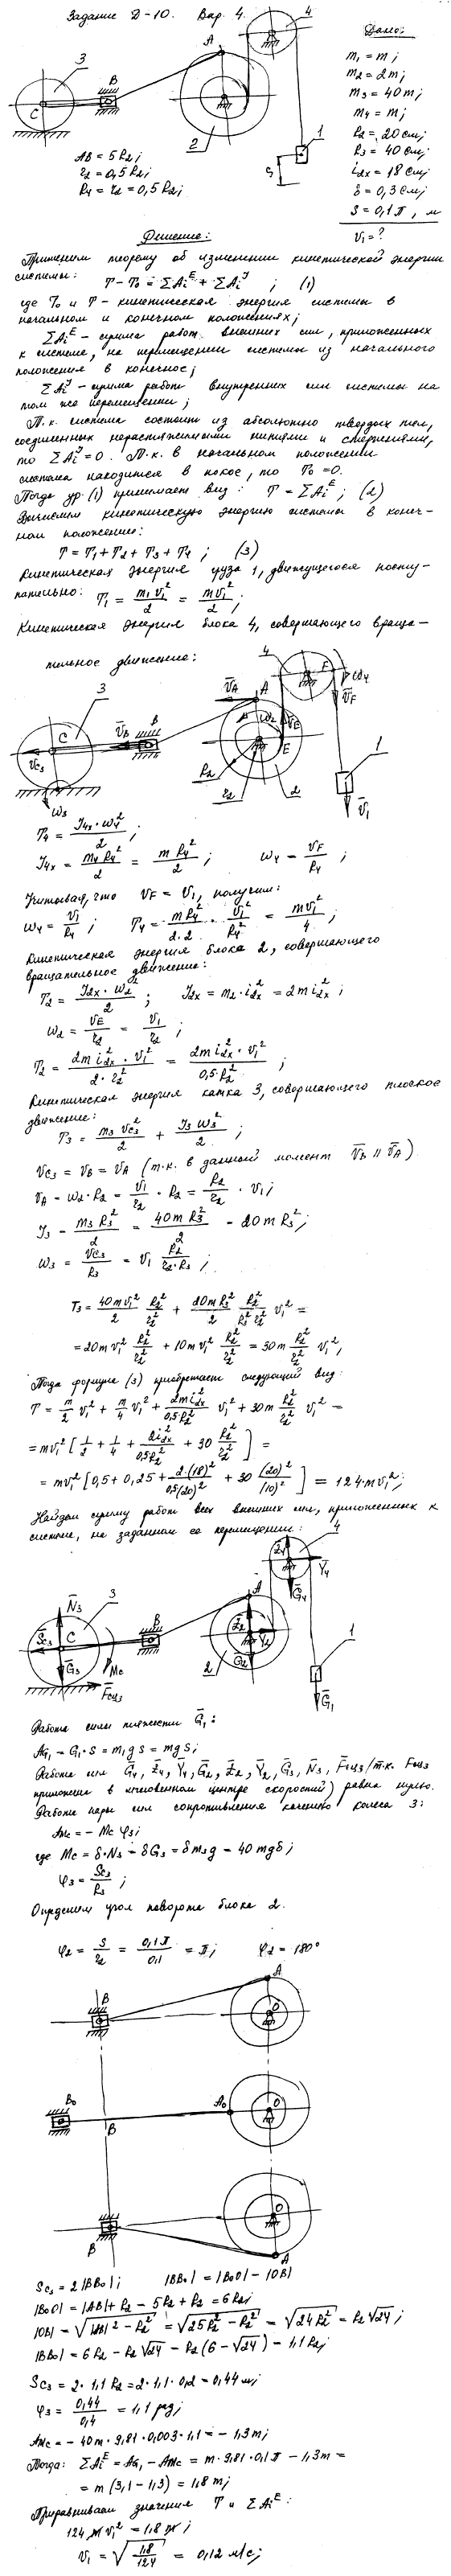 Задание Д-10. Вар. 4.
Дано:
m₁ = m;
m₂ = 2m;
m₃ = 40m;
m₄ = m;
R₂ = 20 см;
R₃ = 40 см;
i₂ₓ = 18 см;
δ = 0,3 см;
S = 0,1π, м
V₁ = ?
3
B
C
A
4
2
1
S
AB = 5R₂;
r₂ = 0,5R₂;
R₄ = r₂ = 0,5R₂;
Решение:
Применим теорему об изменении кинетической энергии
системы: T - T₀ = ΣAᵢᴱ + ΣAᵢᴶ ; (1)
где T₀ и T - кинетическая энергия системы в
начальном и конечном положениях;
ΣAᵢᴱ - сумма работ внешних сил, приложенных
к системе, на перемещении системы из начального
положения в конечное;
ΣAᵢᴶ - сумма работ внутренних сил системы на
том же перемещении;
Т.к. система состоит из абсолютно твердых тел,
соединенных нерастяжимыми нитями и стержнями,
то ΣAᵢᴶ = 0. Т.к. в начальном положении
система находится в покое, то T₀ = 0.
Тогда ур. (1) принимает вид: T = ΣAᵢᴱ; (2)
Вычислим кинетическую энергию системы в конеч-
ном положении:
T = T₁ + T₂ + T₃ + T₄ ; (3)
Кинетическая энергия груза 1, движущегося посту-
пательно: T₁ = m₁V₁²/2 = mV₁²/2;
Кинетическая энергия блока 4, совершающего враща-
тельное движение:
4
F
ω₄
V̄F
V̄A
A
3
V̄B
B
C
V̄C₃
ω₃
ω₂
V̄E
E
R₂
r₂
2
1
V̄₁
T₄ = J₄ₓ·ω₄²/2 ;
J₄ₓ = m₄R₄²/2 = mR₄²/2 ; ω₄ = VF/R₄ ;
Учитывая, что VF = V₁, получим:
ω₄ = V₁/R₄ ; T₄ = mR₄²/2·2 · V₁²/R₄² = mV₁²/4 ;
Кинетическая энергия блока 2, совершающего
вращательное движение:
T₂ = J₂ₓ·ω₂²/2 ; J₂ₓ = m₂·i₂ₓ² = 2m i₂ₓ² ;
ω₂ = VE/r₂ = V₁/r₂ ;
T₂ = 2m i₂ₓ²·V₁²/2·r₂² = 2m i₂ₓ²·V₁²/0,5R₂² ;
Кинетическая энергия катка 3, совершающего плоское
движение:
T₃ = m₃VC₃²/2 + J₃ω₃²/2 ;
VC₃ = VB = VA (т.к. в данной момент V̄B ∥ V̄A)
VA = ω₂·R₂ = V₁/r₂ · R₂ = R₂/r₂ · V₁;
J₃ = m₃R₃²/2 = 40mR₃²/2 = 20mR₃²;
ω₃ = VC₃/R₃ = V₁ R₂/r₂·R₃ ;
T₃ = 40mV₁²/2 R₂²/r₂² + 20mR₃²/2 R₂²/R₃²r₂² V₁² =
= 20mV₁² R₂²/r₂² + 10mV₁² R₂²/r₂² = 30m R₂²/r₂² V₁²,
Тогда формула (3) приобретает следующий вид:
T = m/2 V₁² + m/4 V₁² + 2m i₂ₓ²/0,5R₂² V₁² + 30m R₂²/r₂² V₁² =
= mV₁² [1/2 + 1/4 + 2i₂ₓ²/0,5R₂² + 30 R₂²/r₂²] =
= mV₁² [0,5 + 0,25 + 2·(18)²/0,5(20)² + 30 (20)²/(10)²] = 124·mV₁²;
Найдем сумму работ всех внешних сил, приложенных к
системе, на заданном ее перемещении:
4
Z̄₄
Ȳ₄
Ḡ₄
A
3
N̄₃
B
S̄C₃
C
Ḡ₃
Mc
F̄сц₃
Z̄₂
Ȳ₂
Ḡ₂
2
1
Ḡ₁
Работа силы тяжести Ḡ₁:
AG₁ = G₁·S = m₁gS = mgS;
Работа сил Ḡ₄, Z̄₄, Ȳ₄, Ḡ₂, Z̄₂, Ȳ₂, Ḡ₃, N̄₃, F̄сц₃ (т.к. Fсц₃
приложена в мгновенном центре скоростей) равна нулю.
Работа пары сил сопротивления качению колеса 3:
AMc = - Mc φ₃;
где Mc = δ·N₃ = δG₃ = δm₃g = 40mgδ;
φ₃ = SC₃/R₃ ;
Определим угол поворота блока 2.
φ₂ = S/r₂ = 0,1π/0,1 = π; φ₂ = 180°
B
A
O
B₀
B
A₀
O
B
O
A
SC₃ = 2|BB₀|; |BB₀| = |B₀O| - |OB|
|B₀O| = |AB| + R₂ = 5R₂ + R₂ = 6R₂;
|OB| = √(|AB|² - R₂²) = √(25R₂² - R₂²) = √(24R₂²) = R₂√24;
|BB₀| = 6R₂ - R₂√24 = R₂(6 - √24) = 1,1R₂;
SC₃ = 2·1,1R₂ = 2·1,1·0,2 = 0,44 м;
φ₃ = 0,44/0,4 = 1,1 рад;
AMc = - 40m·9,81·0,003·1,1 = - 1,3m;
Тогда: ΣAᵢᴱ = AG₁ - AMc = m·9,81·0,1π - 1,3m =
= m(3,1 - 1,3) = 1,8m;
Приравниваем значения T и ΣAᵢᴱ:
124 mV₁² = 1,8m;
V₁ = √(1,8/124) = 0,12 м/с;